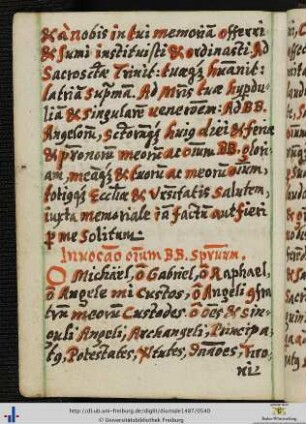 & à nobis in tui memoriã offerri
& sumi instituisti & ordinasti Ad
Sacrosctæ Trinit: tuæq3 humãnit:
latriam supmã. Ad Mris tuæ hypdu-
liã & singularẽ venerõem: Ad BB.
Angelorũ, Sctorũq3 huiq diei & feriæ
& pronorũ meorũ ac oĩum BB. glori-
am, meãq3 & tuorũ ac meorũ oĩum,
totiq3 Eccliæ & Vrsitatis Salutem,
iuxta memoriale iã factũ aut fieri
p me solitum.
Invocão oĩum BB. Spũum.
O Michaël, ô Gabriel, ô Raphael,
ô Angele mi Custos, ô Angeli
meorum Custodes. ô ões & sin-
guli Angeli, Archangeli, Principa-
tq, Potestates, Vtutes, Dnãões, Tro-
ni
http://dl.ub.uni-freiburg.de/diglit/diurnale1487/0540
© Universitätsbibliothek Freiburg
Baden-Württemberg